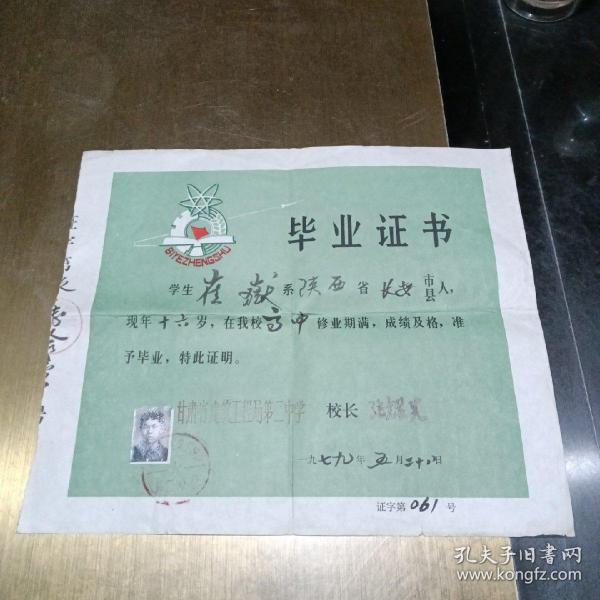 毕业证书
BIYEZHENGSHU
学生崔嶽系陕西省长安市县人，
现年十六岁，在我校高中修业期满，成绩及格，准
予毕业，特此证明。
甘肃省建筑工程局第二中学 校长
一九七九年五月三十日
证字第061号
孔夫子旧书网
www.kongfz.com